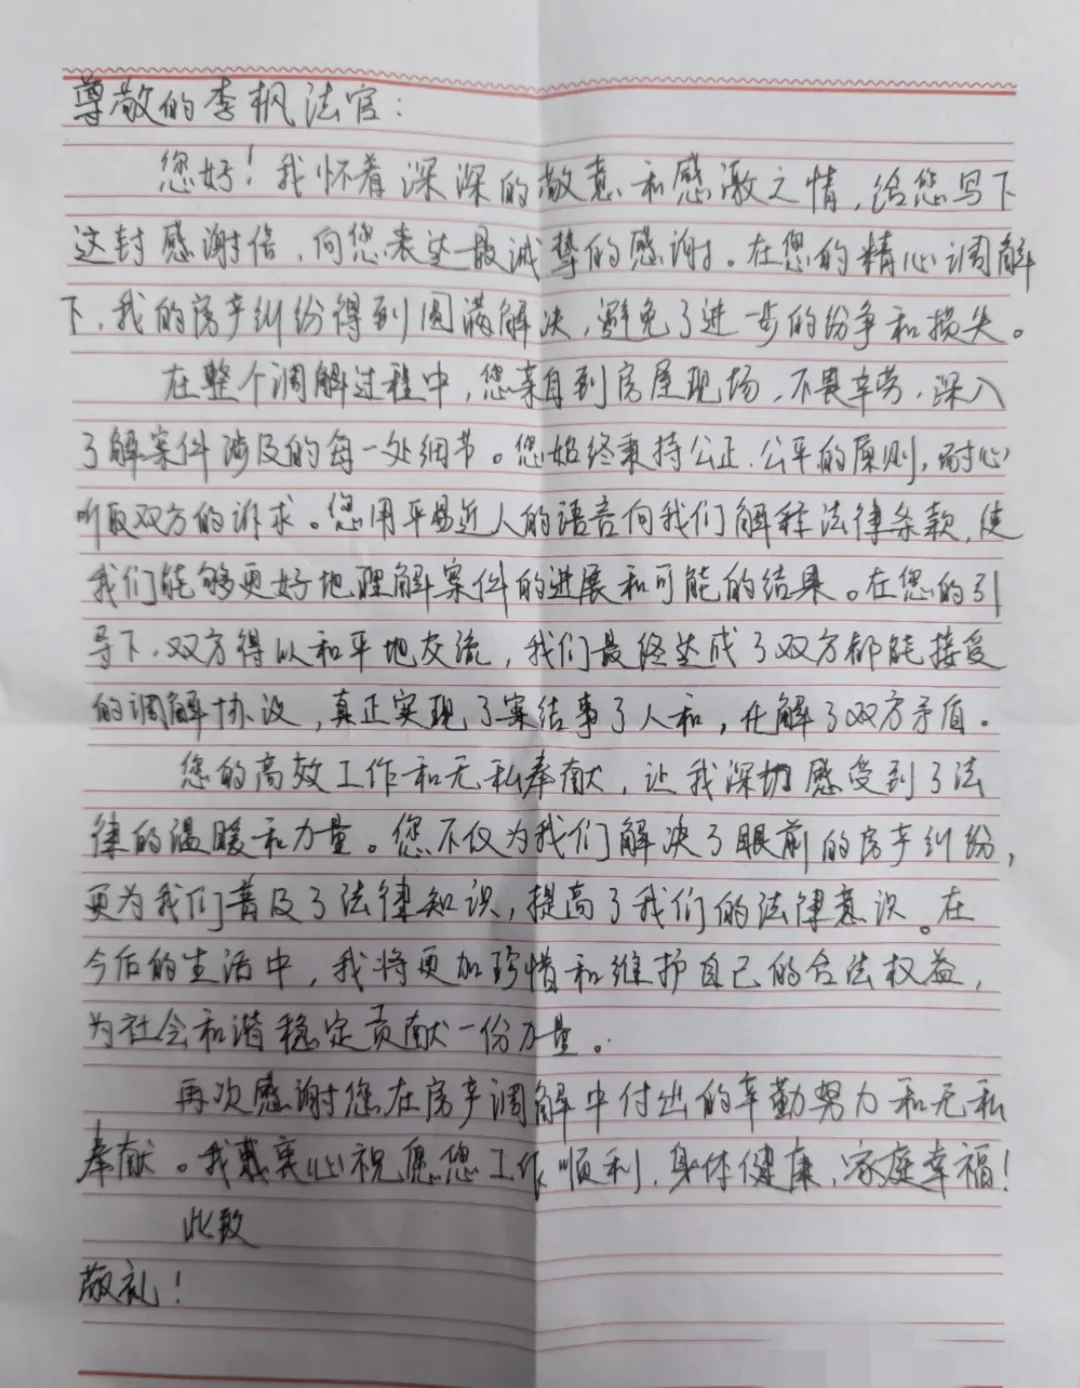 尊敬的李枫法官：
您好！我怀着深深的敬意和感激之情，给您写下
这封感谢信，向您表达最诚挚的感谢。在您的精心调解
下，我的房产纠纷得到圆满解决，避免了进一步的纷争和损失。
在整个调解过程中，您亲自到房屋现场，不畏辛劳，深入
了解案件涉及的每一处细节。您始终秉持公正、公平的原则，耐心
听取双方的诉求。您用平易近人的语言向我们解释法律条款，使
我们能够更好地理解案件的进展和可能的结果。在您的引
导下，双方得以和平地交流，我们最终达成了双方都能接受
的调解协议，真正实现了案结事了人和，化解了双方矛盾。
您的高效工作和无私奉献，让我深切感受到了法
律的温暖和力量。您不仅为我们解决了眼前的房产纠纷，
更为我们普及了法律知识，提高了我们的法律意识。在
今后的生活中，我将更加珍惜和维护自己的合法权益，
为社会和谐稳定贡献一份力量。
再次感谢您在房产调解中付出的辛勤努力和无私
奉献。我衷心祝愿您工作顺利，身体健康，家庭幸福！
此致
敬礼！